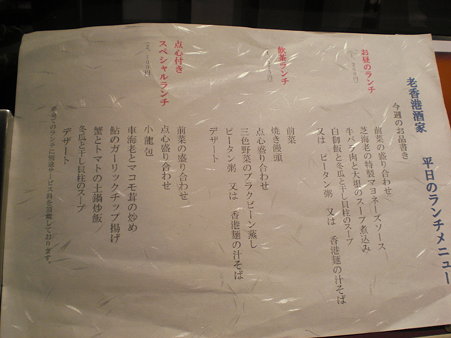 老香港酒家　平日のランチメニュー
今週のお品書き
お昼のランチ
前菜の盛り合わせ
芝海老の特製マヨネーズソース
牛バラ肉と大根のスープ煮込み
白御飯と冬瓜と干し貝柱のスープ
又は　ピータン粥　又は　香港麺の汁そば
飲茶ランチ
前菜
焼き饅頭
点心盛り合わせ
三色野菜のブラックビーン蒸し
ピータン粥　又は　香港麺の汁そば
デザート
点心付き
スペシャルランチ
前菜の盛り合わせ
点心盛り合わせ
小龍包
車海老とマコモ茸の炒め
鮎のガーリックチップ揚げ
蟹とトマトの土鍋炒飯
冬瓜と干し貝柱のスープ
デザート